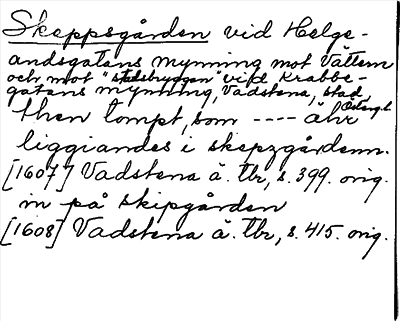 Skeppsgården vid Helge-
andsgatans mynning mot Vättern
och mot "stadsbryggan" vid Krabbe-
gatans mynning, Vadstena, stad,
Österg.l.
then tompt, som ---- ähr
liggiandes i skepzgårdenn.
[1607] Vadstena ä. tbr, s. 399. orig.
in på skipgården
[1608] Vadstena ä. tbr, s. 415. orig.